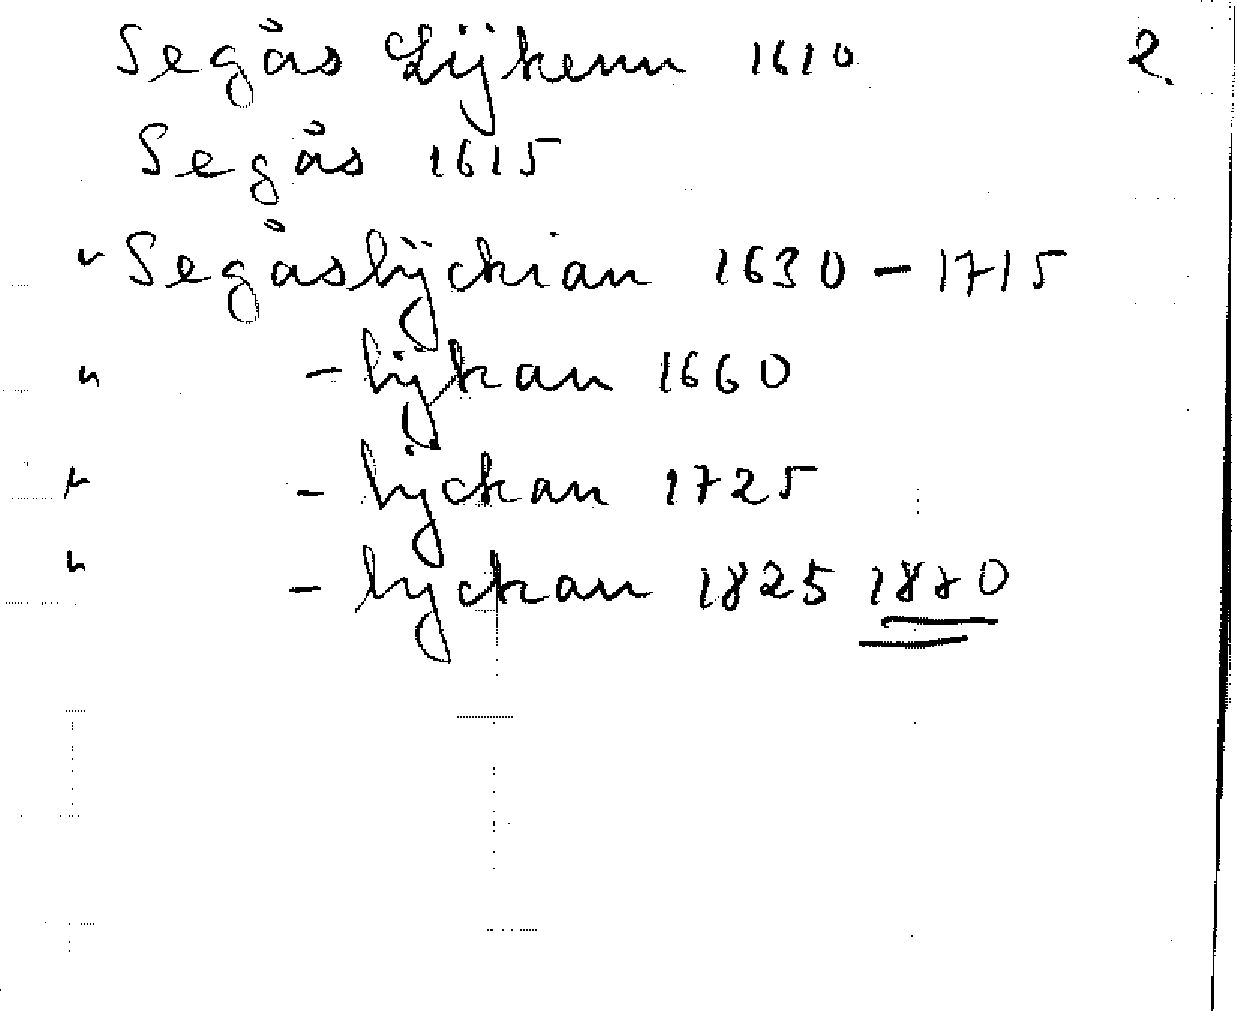 Segås Lÿkenn 1610 2.
Segås 1615
" Segåslÿckian 1630 - 1715
" - lÿkan 1660
" - lÿckan 1725
" - lyckan 1825 1880